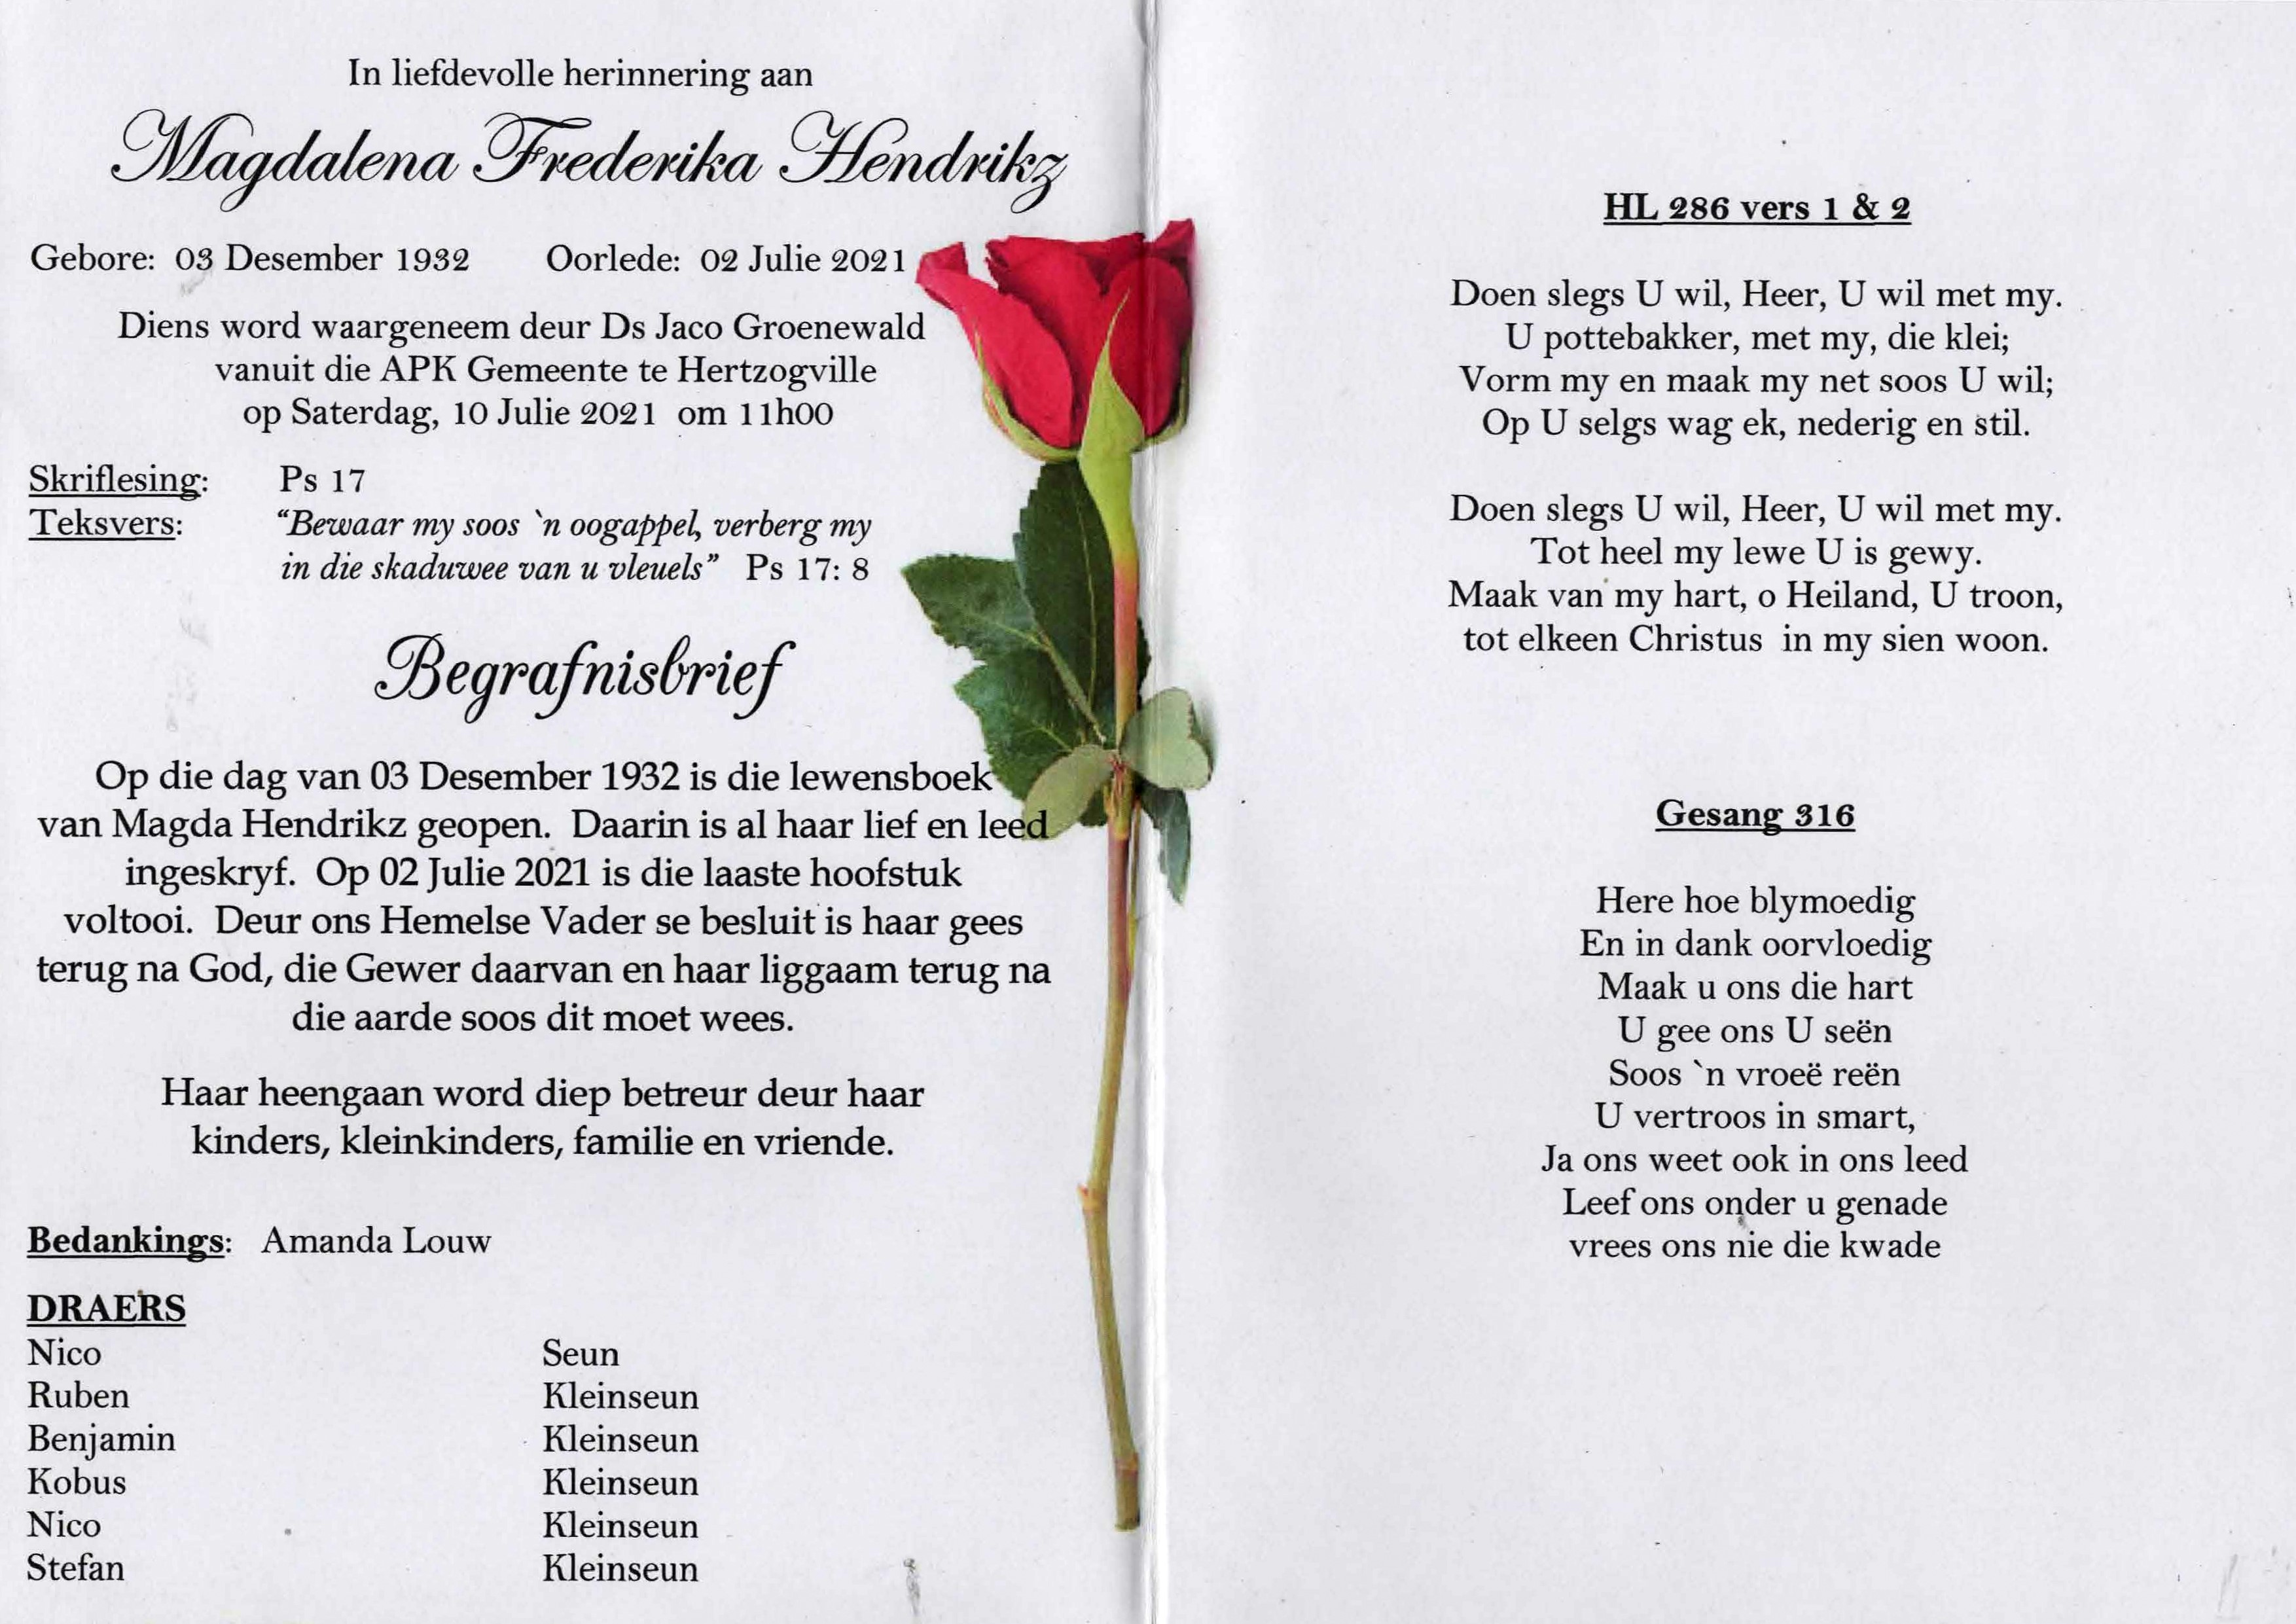 In liefdevolle herinnering aan
Magdalena Frederika Hendrikz
Gebore: 03 Desember 1932 Oorlede: 02 Julie 2021
Diens word waargeneem deur Ds Jaco Groenewald
vanuit die APK Gemeente te Hertzogville
op Saterdag, 10 Julie 2021 om 11h00
Skriflesing: Ps 17
Teksvers: “Bewaar my soos `n oogappel, verberg my
in die skaduwee van u vleuels” Ps 17: 8
Begrafnisbrief
Op die dag van 03 Desember 1932 is die lewensboek
van Magda Hendrikz geopen. Daarin is al haar lief en leed
ingeskryf. Op 02 Julie 2021 is die laaste hoofstuk
voltooi. Deur ons Hemelse Vader se besluit is haar gees
terug na God, die Gewer daarvan en haar liggaam terug na
die aarde soos dit moet wees.
Haar heengaan word diep betreur deur haar
kinders, kleinkinders, familie en vriende.
Bedankings: Amanda Louw
DRAERS
Nico Seun
Ruben Kleinseun
Benjamin Kleinseun
Kobus Kleinseun
Nico Kleinseun
Stefan Kleinseun
HL 286 vers 1 & 2
Doen slegs U wil, Heer, U wil met my.
U pottebakker, met my, die klei;
Vorm my en maak my net soos U wil;
Op U selgs wag ek, nederig en stil.
Doen slegs U wil, Heer, U wil met my.
Tot heel my lewe U is gewy.
Maak van my hart, o Heiland, U troon,
tot elkeen Christus in my sien woon.
Gesang 316
Here hoe blymoedig
En in dank oorvloedig
Maak u ons die hart
U gee ons U seën
Soos `n vroeë reën
U vertroos in smart,
Ja ons weet ook in ons leed
Leef ons onder u genade
vrees ons nie die kwade